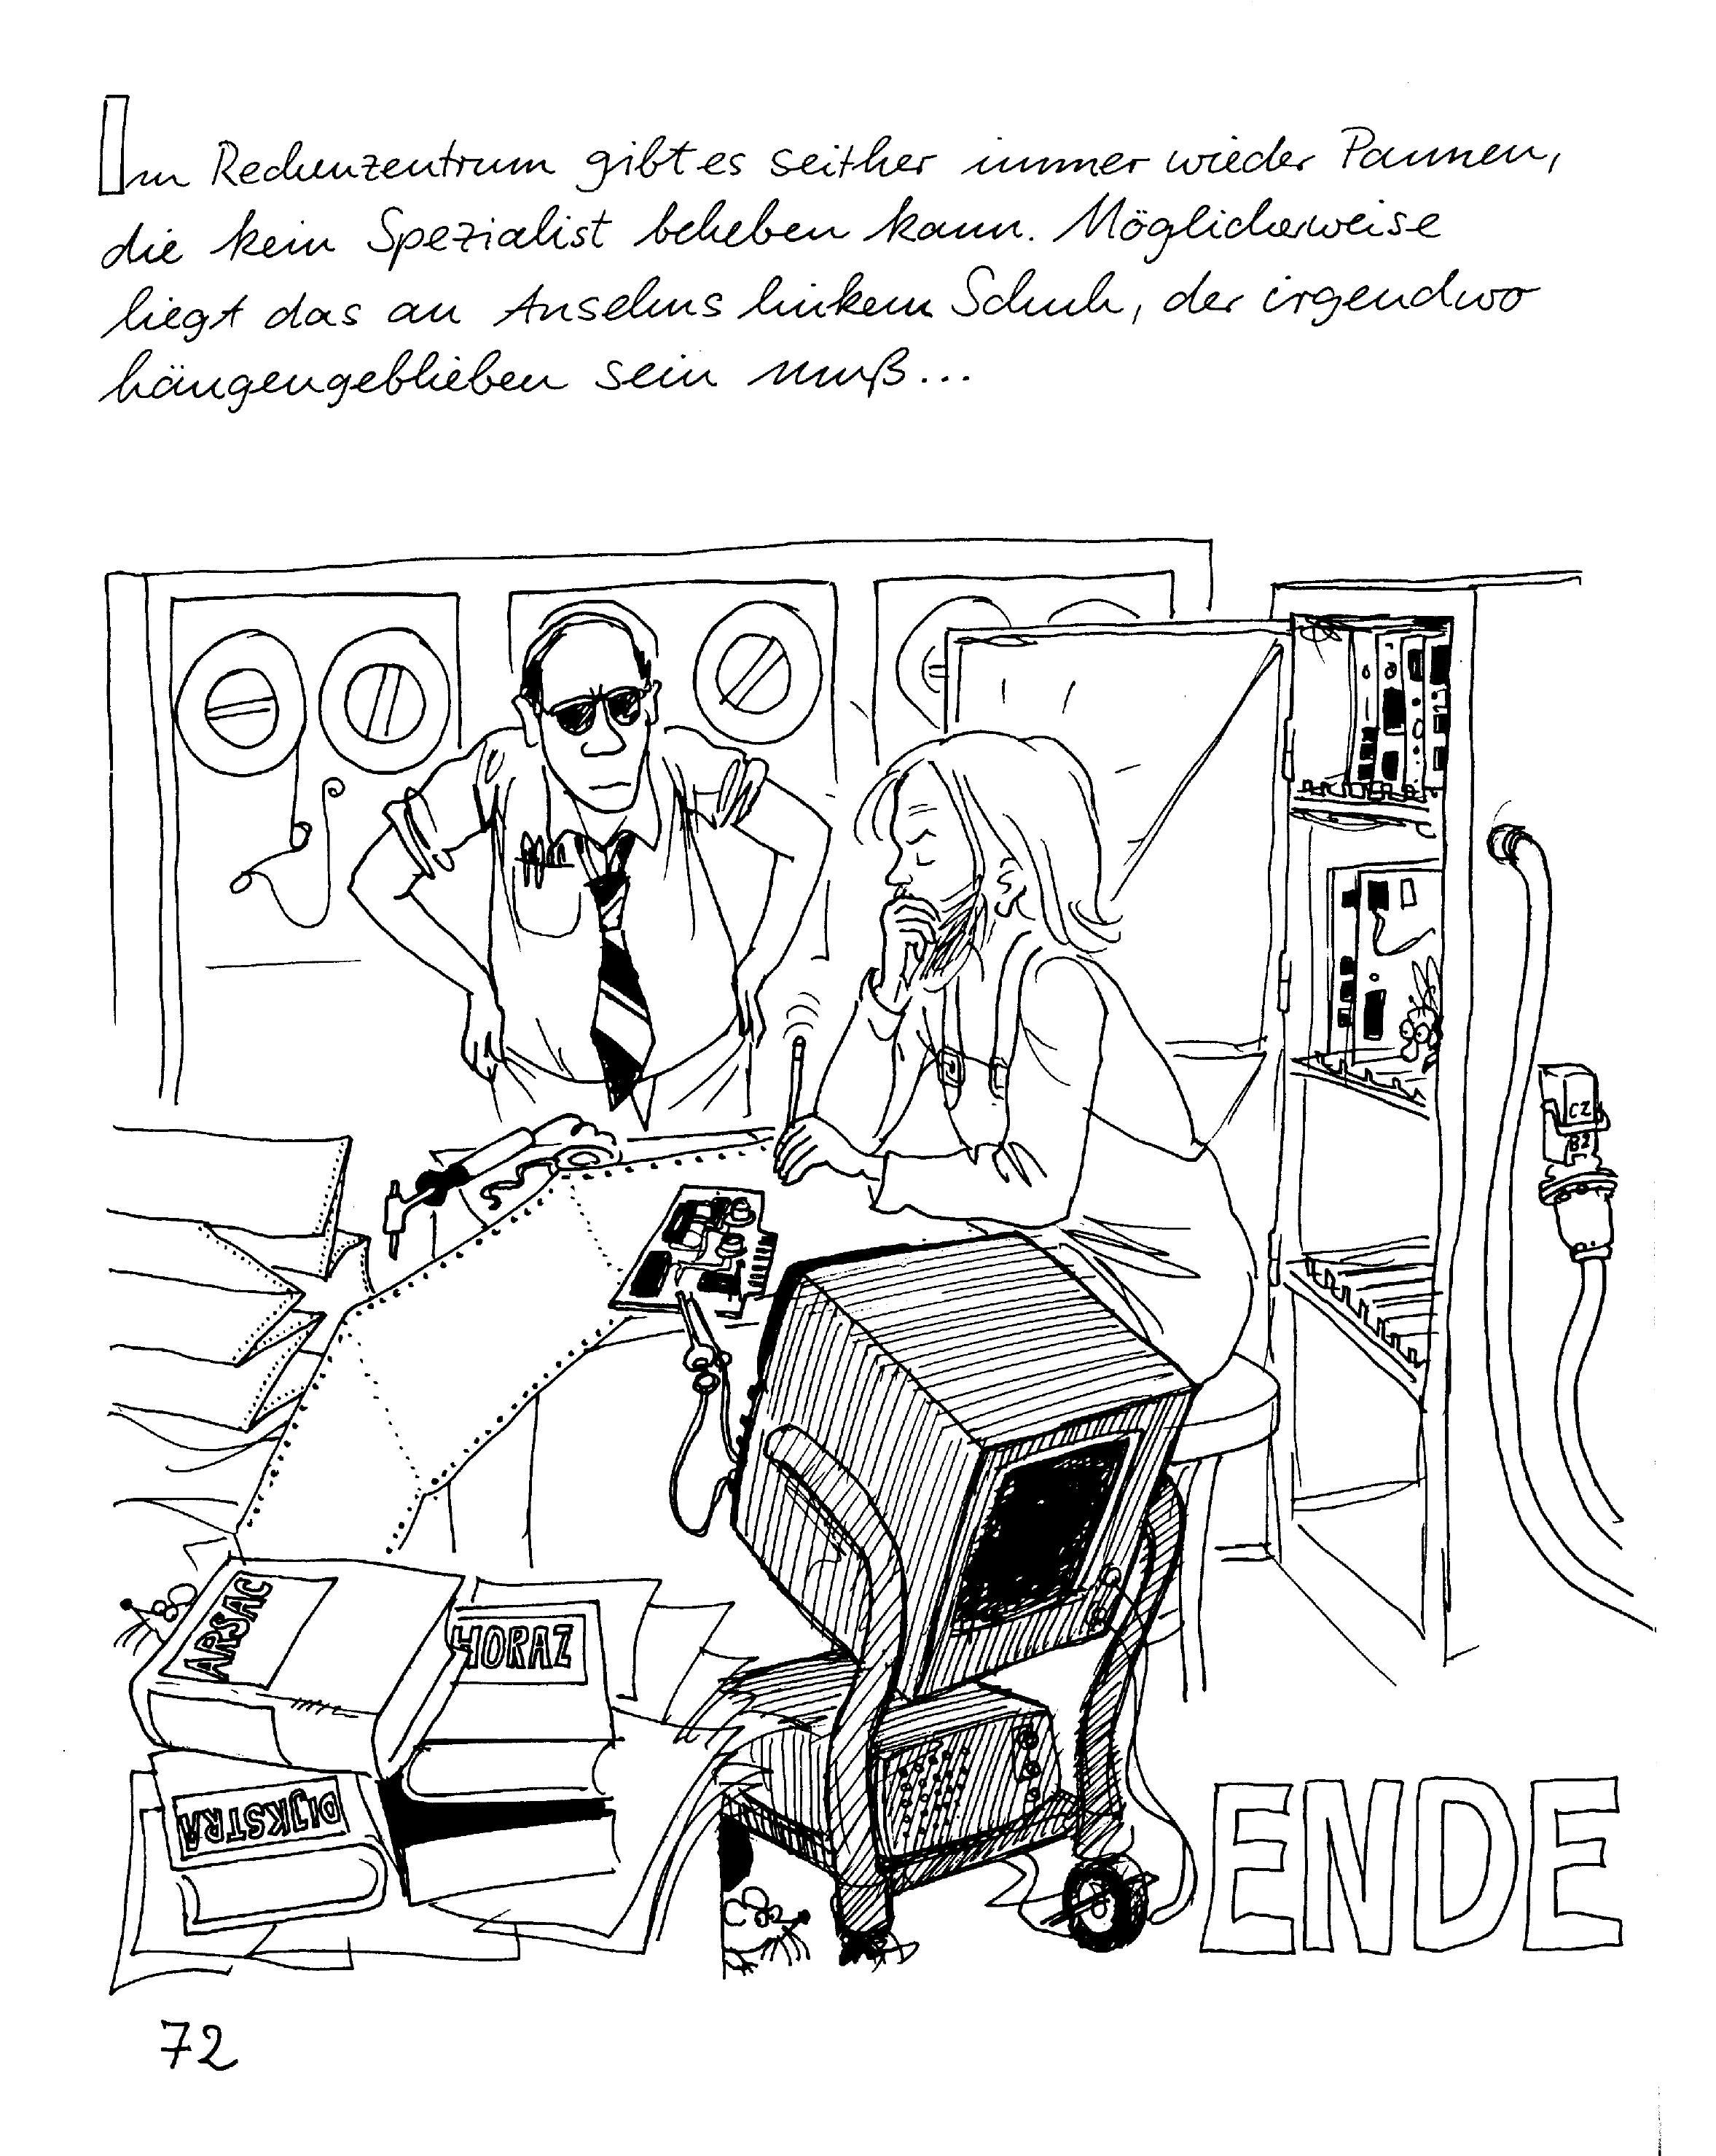 Im Rechenzentrum gibt es seither immer wieder Pannen,
die kein Spezialist beheben kann. Möglicherweise
liegt das an Anselms linkem Schuh, der irgendwo
hängengeblieben sein muß...
CZ
BZ
ARSAC
HORAZ
DIJKSTRA
ENDE
72